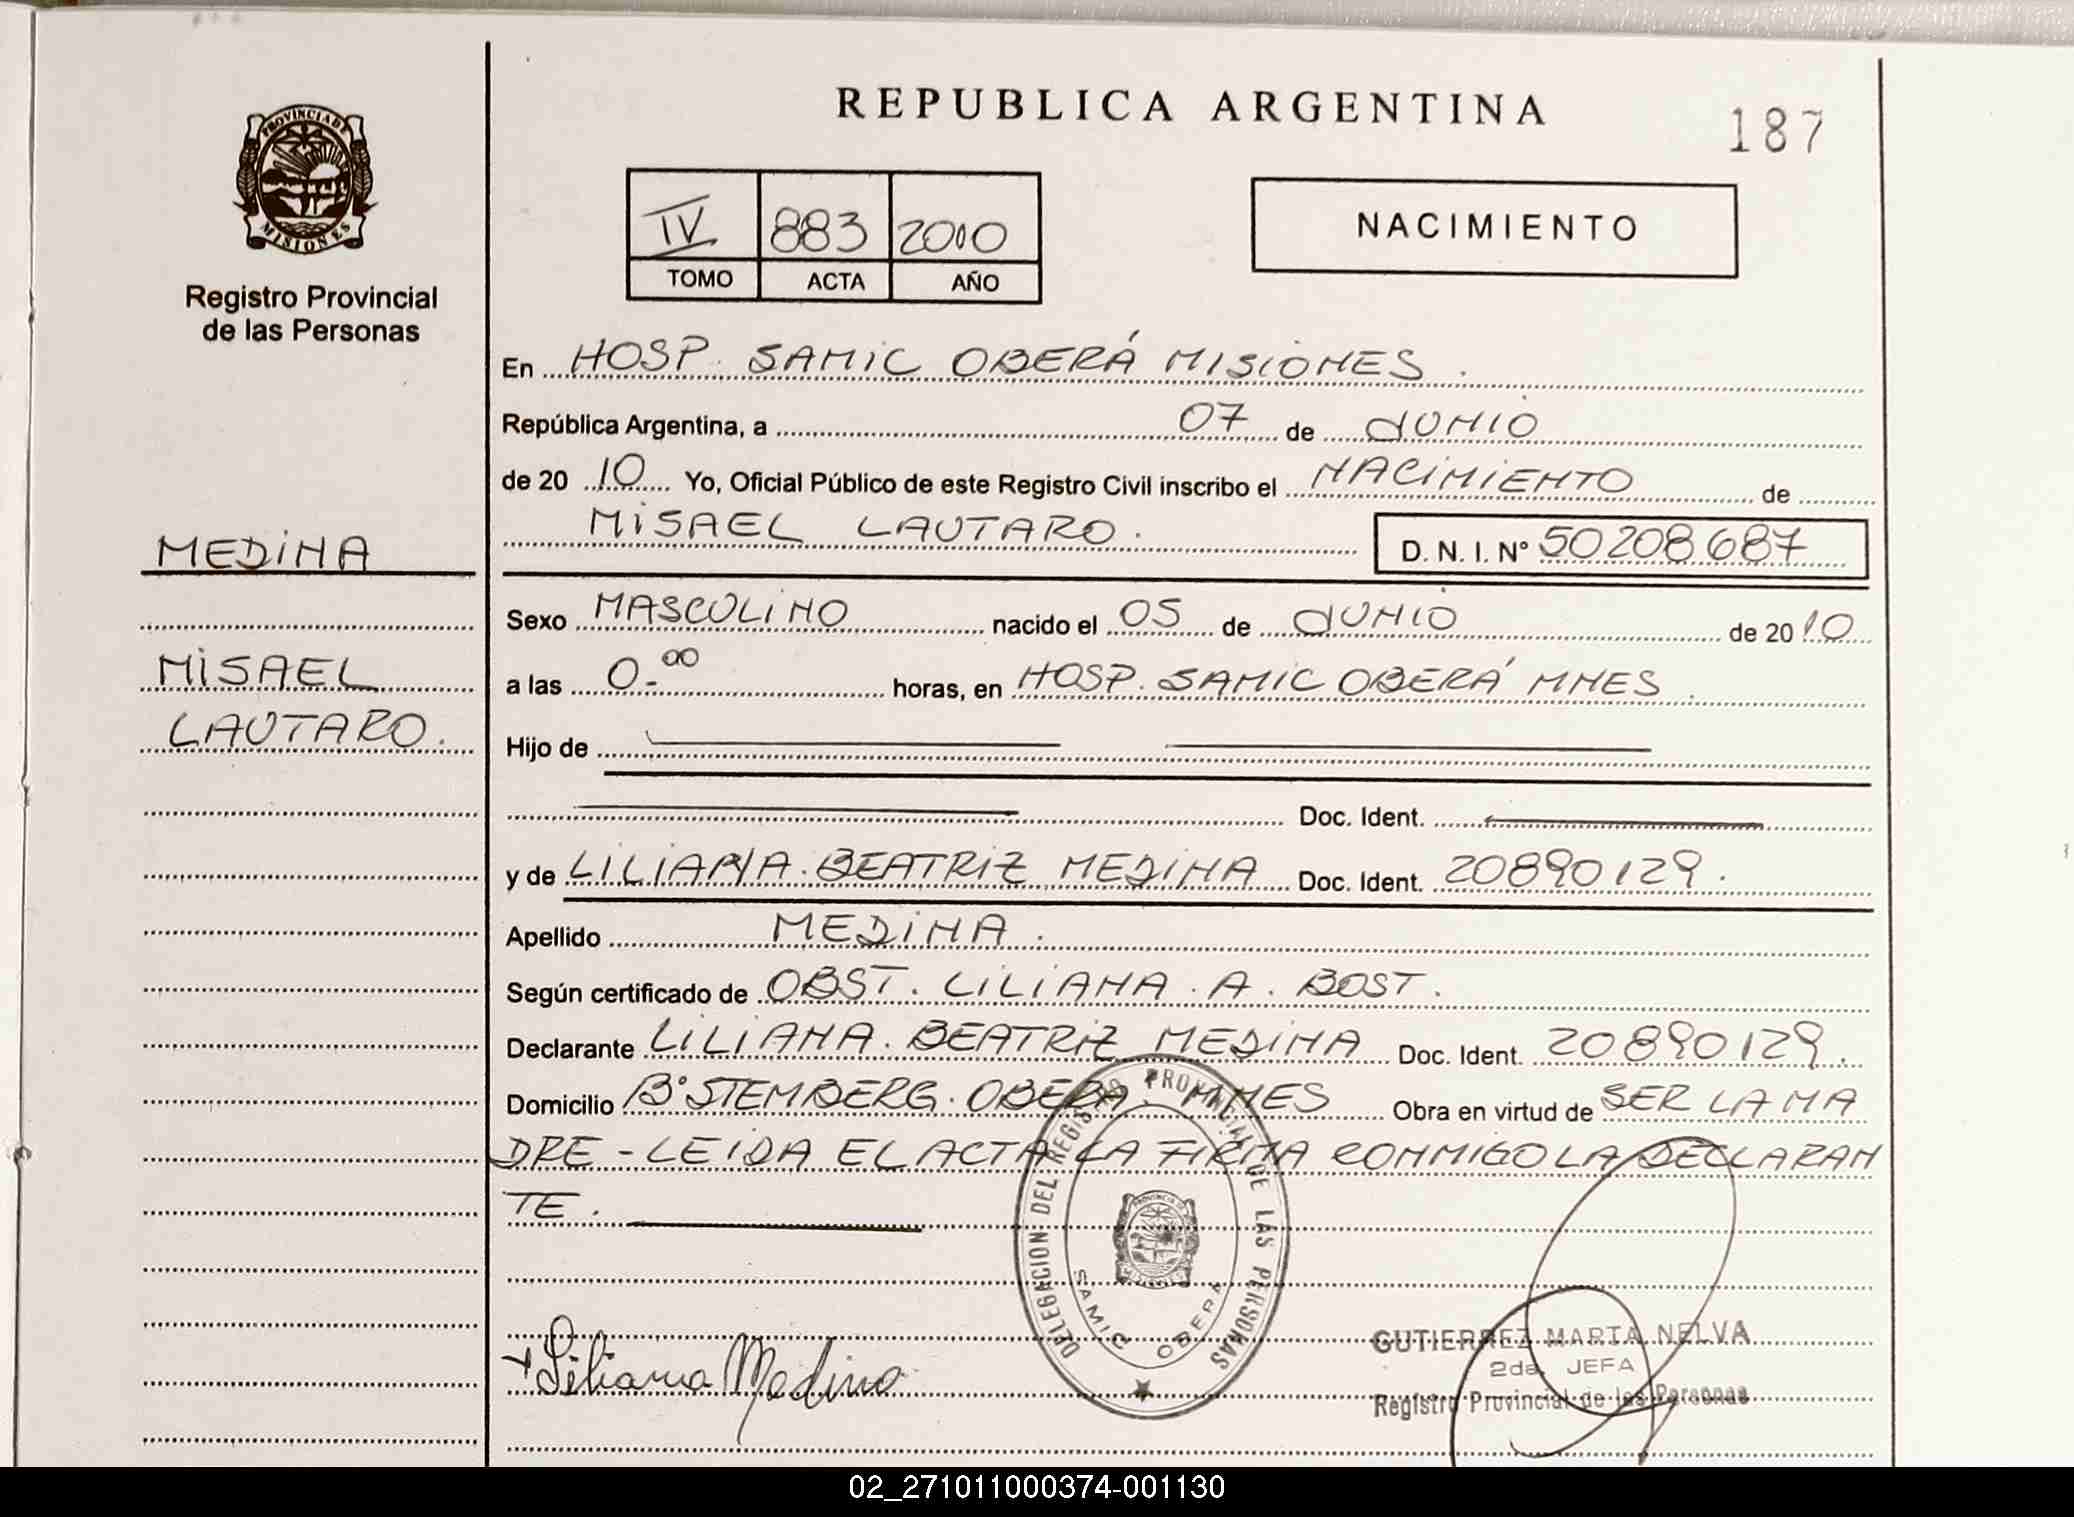 REPUBLICA ARGENTINA
187
PROVINCIA DE
MISIONES
Registro Provincial
de las Personas
IV 883 2010
TOMO ACTA AÑO
NACIMIENTO
En HOSP. SAMIC OBERÁ MISIONES.
República Argentina, a 07 de JUNIO
de 20 10 Yo, Oficial Público de este Registro Civil inscribo el NACIMIENTO de
MISAEL LAUTARO.
D. N. I. Nº 50208687
MEDINA
MISAEL
LAUTARO.
Sexo MASCULINO nacido el 05 de JUNIO de 20 10
a las 0.00 horas, en HOSP. SAMIC OBERÁ MNES.
Hijo de
Doc. Ident.
y de LILIANA. BEATRIZ MEDINA Doc. Ident. 20890129.
Apellido MEDINA.
Según certificado de OBST. LILIANA. A. BOST.
Declarante LILIANA. BEATRIZ MEDINA Doc. Ident. 20890129.
Domicilio Bº STEMBERG. OBERÁ. MNES Obra en virtud de SER LA MA
DRE - LEIDA EL ACTA LA FIRMA CONMIGO LA DECLARAN
TE.
DELEGACION DEL REGISTRO PROVINCIAL DE LAS PERSONAS
SAMIC OBERA
Liliana Medina
GUTIERREZ MARTA NELVA
2da. JEFA
Registro Provincial de las Personas
02_271011000374-001130